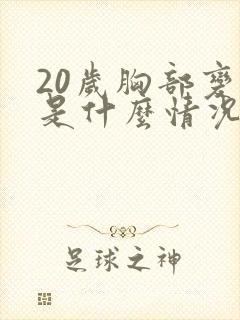 20歲胸部變
是什麼情況
足球之神